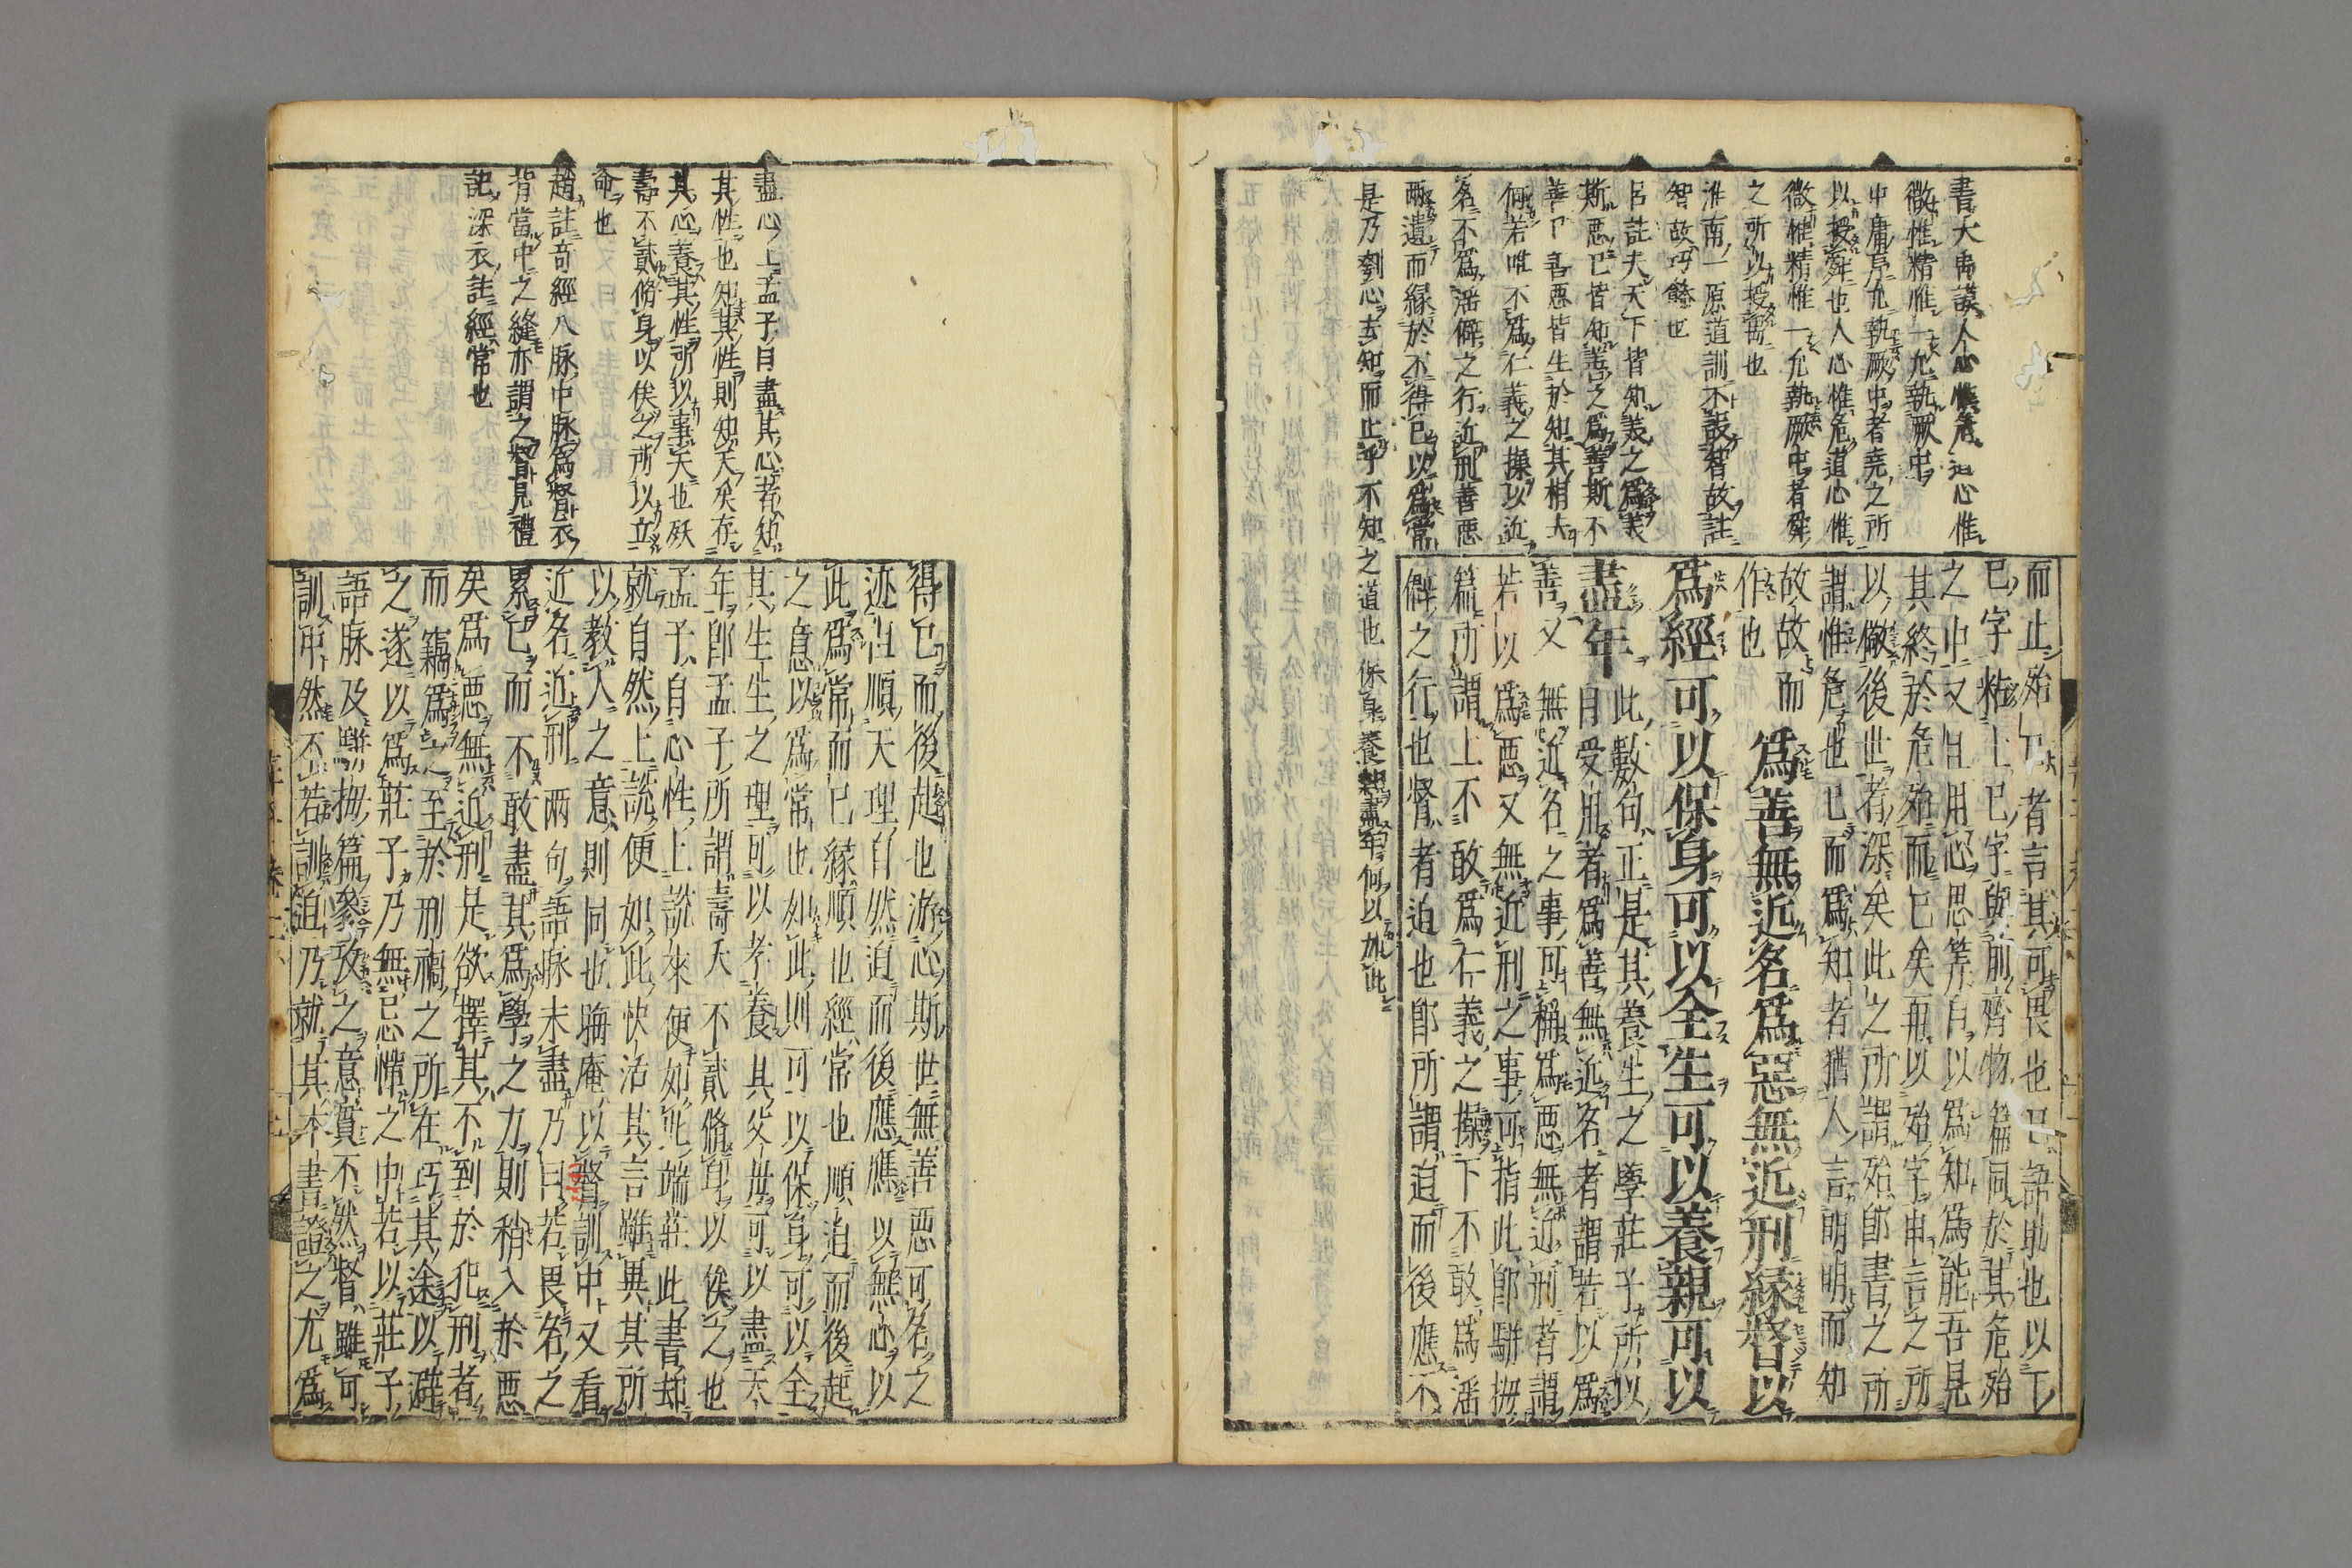 書大禹謨人心惟危道心惟
微惟精惟一允執厥中
中庸序允執厥中者堯之所
以授舜也人心惟危道心惟
微惟精惟一允執厥中者舜
之所以授禹也
淮南一原道訓不設智故註
智故巧飾也
呂註夫天下皆知美之為美
斯惡已皆知善之為善斯不
善已善惡皆生於知其相去
何若唯不為仁義之操以近
名不為滛僻之行近刑善惡
兩遺而緣於不得已以為常
是乃劉心去知而止乎不知之道也保身養親盡年何以加此
而止殆已者言其可畏也已語助也以下
已字粘上已字與前齊物篇同於其危殆
之中又且用心思筭自以為知為能吾見
其終於危殆而已矣再以殆字申言之所
以儆後世者深矣此之所謂殆即書之所
謂惟危也已而為知者猶人言明明而知
故故而
作也
為善無近名為惡無近刑緣督以
為經可以保身可以全生可以養親可以
盡年
此數句正是其養生之學莊子所以
自受用者為善無近名者謂若以為
善又無近名之事可稱為惡無近刑者謂
若以為惡又無近刑之事可指此即駢拇
篇所謂上不敢為仁義之操下不敢為滛
僻之行也督者迫也即所謂迫而後應不
盡心上孟子曰盡其心者知
其性也知其性則知天矣存
其心養其性所以事天也殀
壽不貳脩身以俟之所以立
命也
趙註奇經八脉中脉為督衣
背當中之縫亦謂之督見禮
記深衣註經常也
得已而後起也游心斯世無善惡可名之
迹但順天理自然迫而後應應以無心以
此為常而已緣順也經常也順迫而後起
之意以為常也如此則可以保身可以全
其生生之理可以孝養其父母可以盡天
年即孟子所謂壽夭不貳脩身以俟之也
孟子自心性上說來便如此端莊此書却
就自然上說便如此快活其言雖異其所
以教人之意則同也晦庵以督訓中又看
近名近刑兩句語脉未盡乃曰若畏名之
累已而不敢盡其為學之力則稍入於惡
矣為惡無近刑是欲擇其不到於犯刑者
而竊為之至於刑禍之所在巧其途以避
之遂以為莊子乃無忌憚之中若以莊子
語脉及駢拇篇參攷之意實不然督雖可
訓中然不若訓迫乃就其本書證之尤為